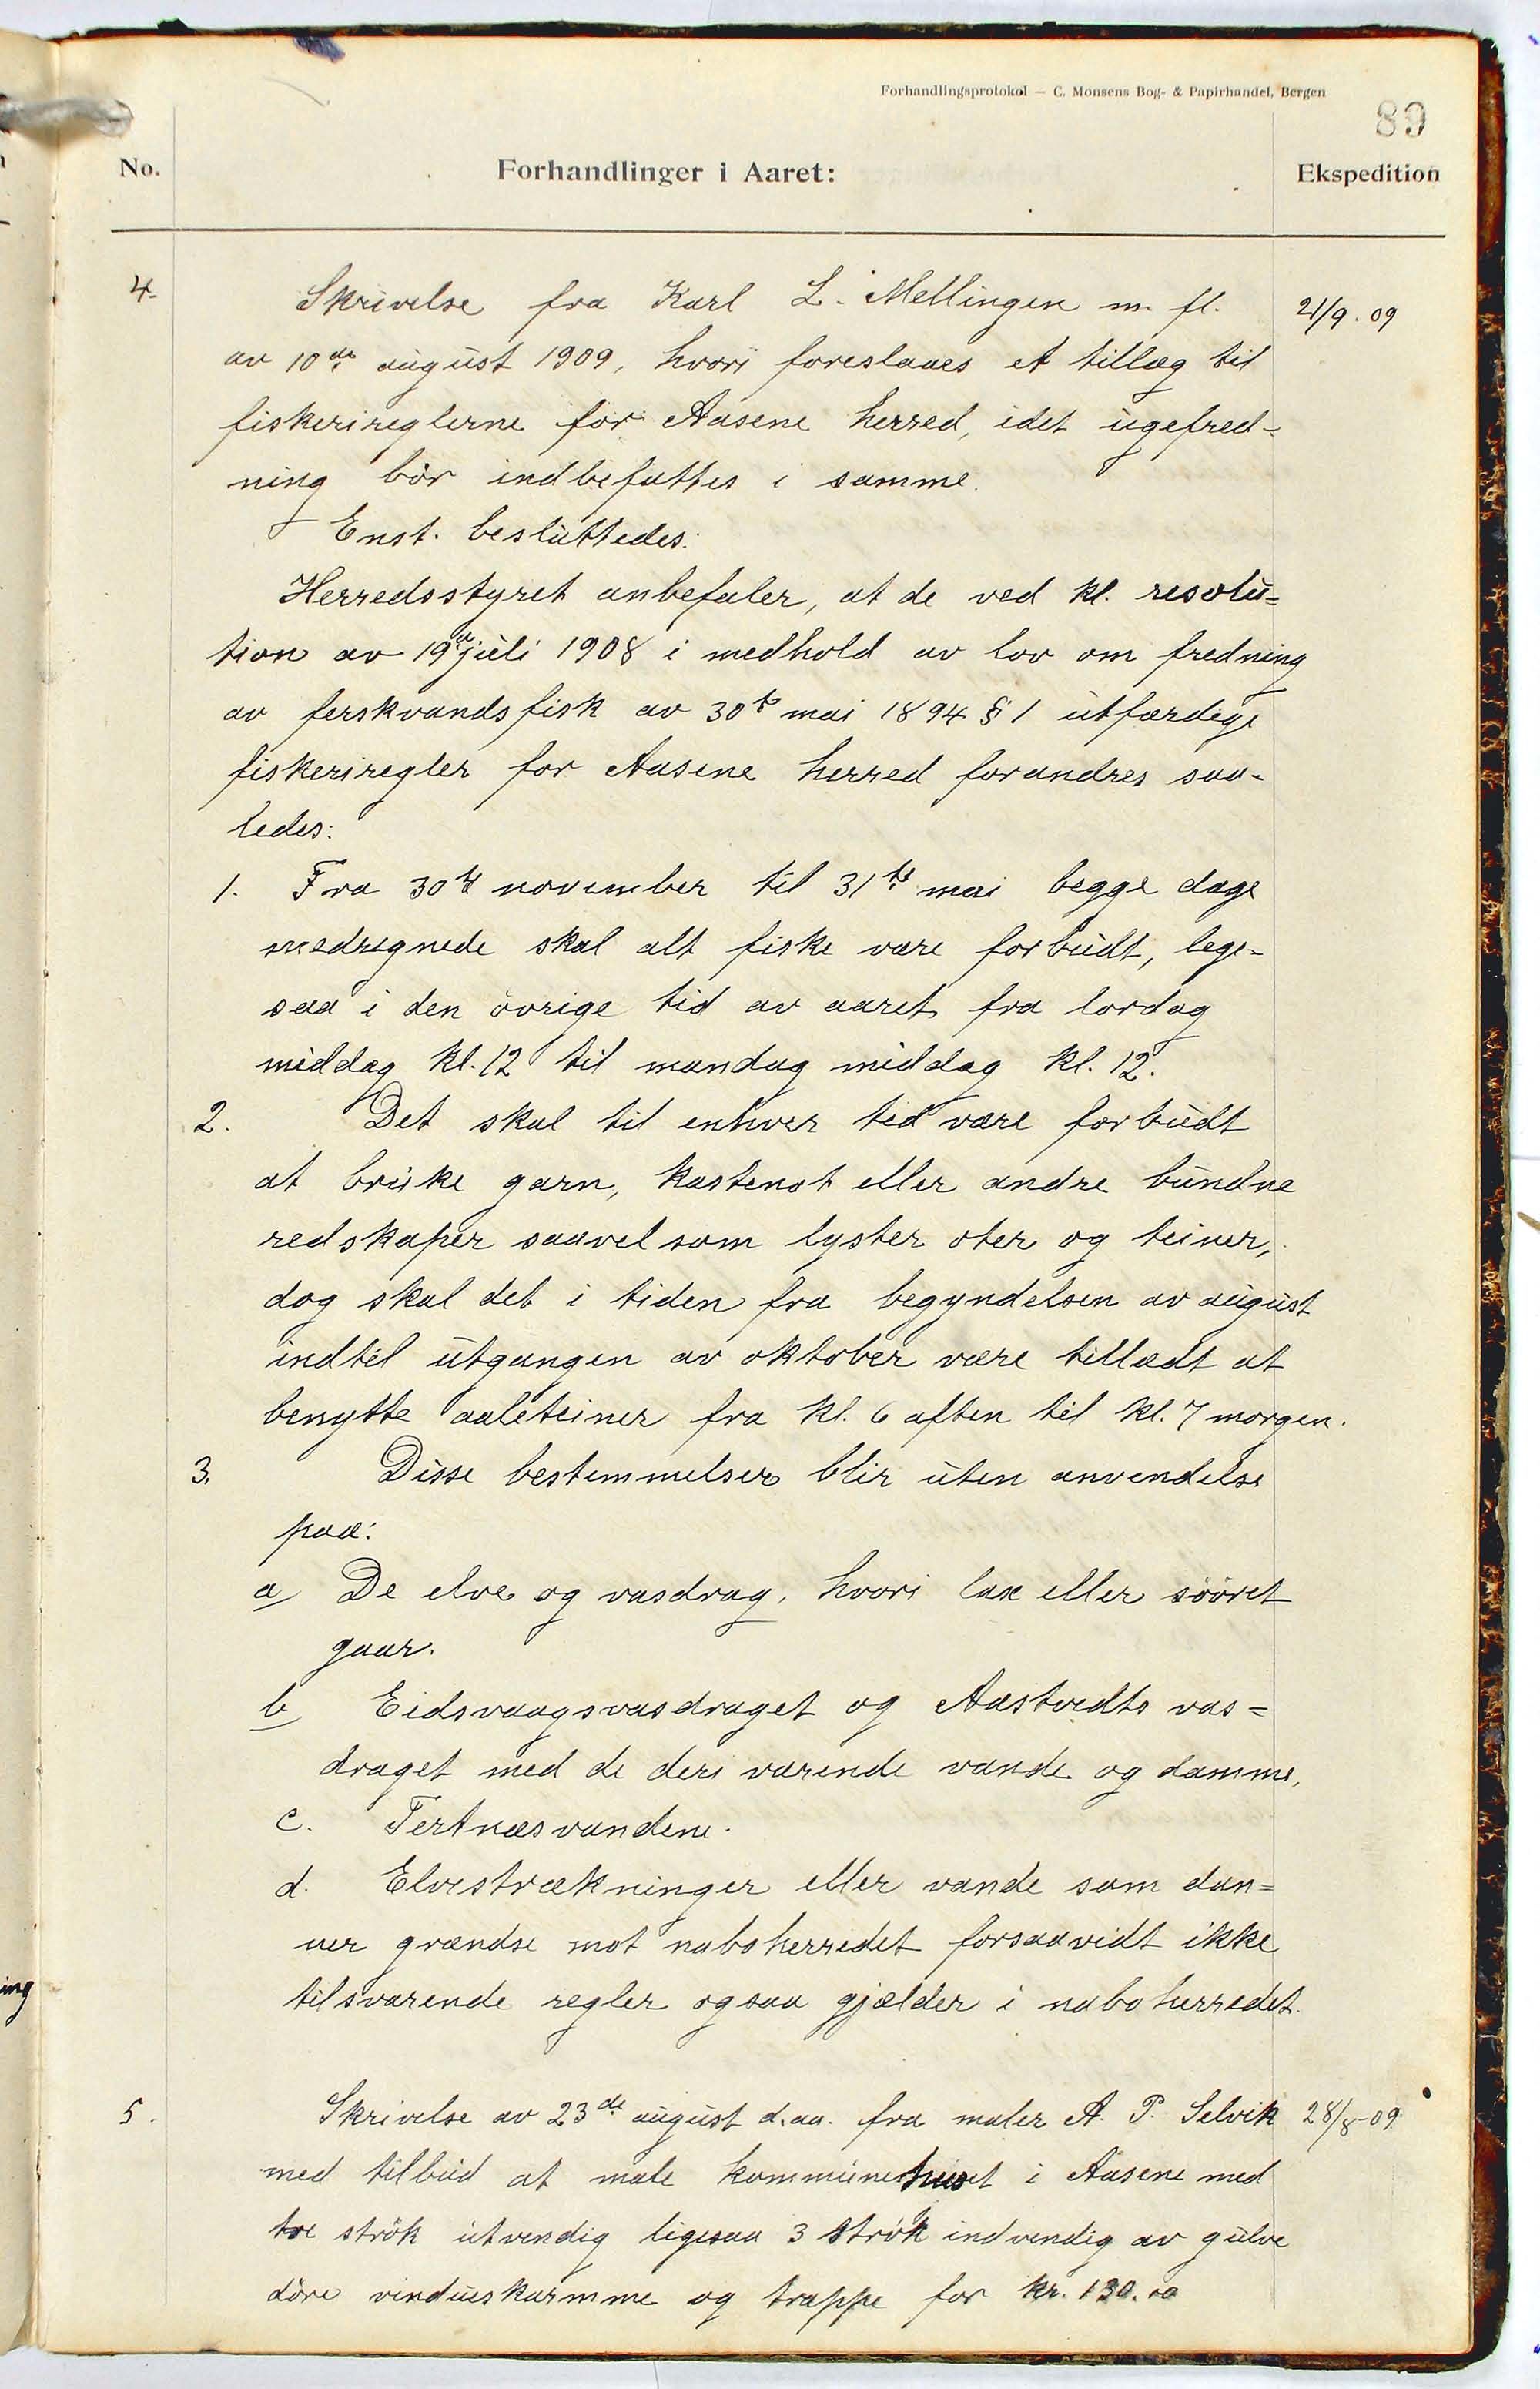 Forhandlingsprotokol – C. Monsens Bog- & Papirhandel, Bergen
89
No. Forhandlinger i Aaret: Ekspedition
4. Skrivelse fra Karl L. Mellingen m. fl. 21/9. 09
av 10de august 1909, hvori foreslaaes et tillæg til
fiskerireglerne for Aasene herred, idet ugefred-
ning bör indbefattes i samme.
Enst. besluttedes:
Herredsstyret anbefaler, at de ved kl. resolu=
tion av 19de juli 1908 i medhold av lov om fredning
av ferskvandsfisk av 30te mai 1894 § 1 utfærdige
fiskeriregler for Aasene herred forandres saa-
ledes:
1. Fra 30te november til 31te mai begge dage
medregnede skal alt fiske være forbudt, lege-
saa i den övrige tid av aaret fra lordag
middag kl. 12 til mandag middag kl. 12.
2. Det skal til enhver tid være forbudt
at bruke garn, kastenot eller andre bundne
redskaper saavel som lyster oter og teiner,
dog skal det i tiden fra begyndelsen av august
indtil utgangen av oktober være tilladt at
benytte aaleteiner fra kl. 6 aften til kl. 7 morgen.
3. Disse bestemmelser blir uten anvendelse
paa:
a/ De elve og vasdrag, hvori lax eller sööret
gaar.
b/ Eidsvaagsvasdraget og Aastvedts vas=
draget med de deri værende vande og damme,
c. Tertnæsvandene.
d. Elvestrækninger eller vande som dan=
ner grændse mot naboherredet forsaavidt ikke
tilsvarende regler ogsaa gjælder i naboherredet.
5. Skrivelse av 23de august d.aa. fra maler A. P. Selvik 28/8-09
med tilbud at male kommunehuset i Aasene med
tre strök utvendig ligesaa 3 strök indvendig av gulve
döre vindueskarmme og trappe for kr. 130.00
ing